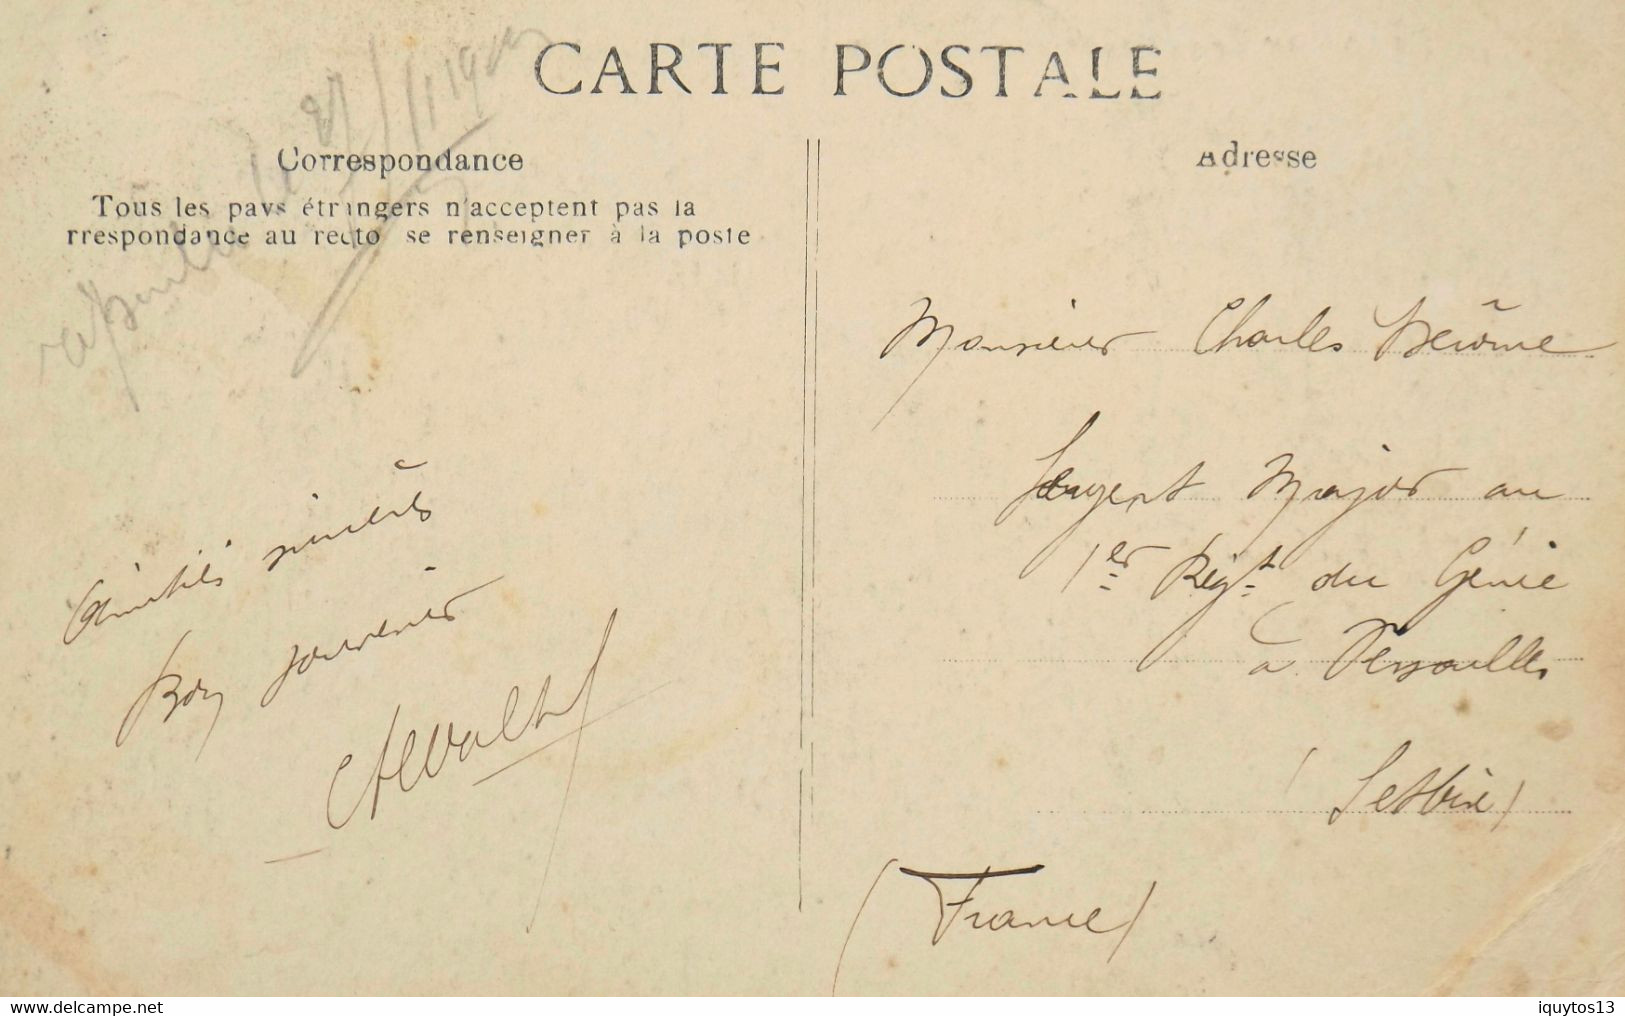 CARTE POSTALE
Correspondance
Tous les pays étrangers n'acceptent pas la
rrespondance au recto se renseigner à la poste
Adresse
Amitiés sincères
Bon souvenir
Monsieur Charles
Sergent Major au
1er Régt du Génie
à Versailles
(Set Oise)
(France)
www.delcampe.net
iquytos13